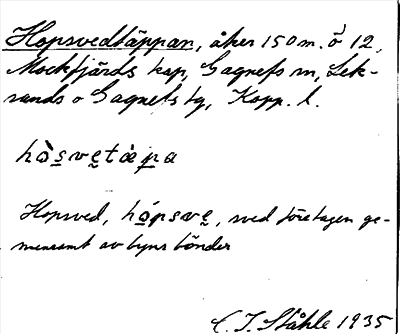 Hopsvedtäppan, åker 150 m. ö 12,
Mockfjärds kap, Gagnefs sn, Lek-
sands o Gagnefs tg, Kopp. l.
hòsvetàpa
Hopsved, hópsve, sved företagen ge-
mensamt av byns bönder
C. I. Ståhle 1935